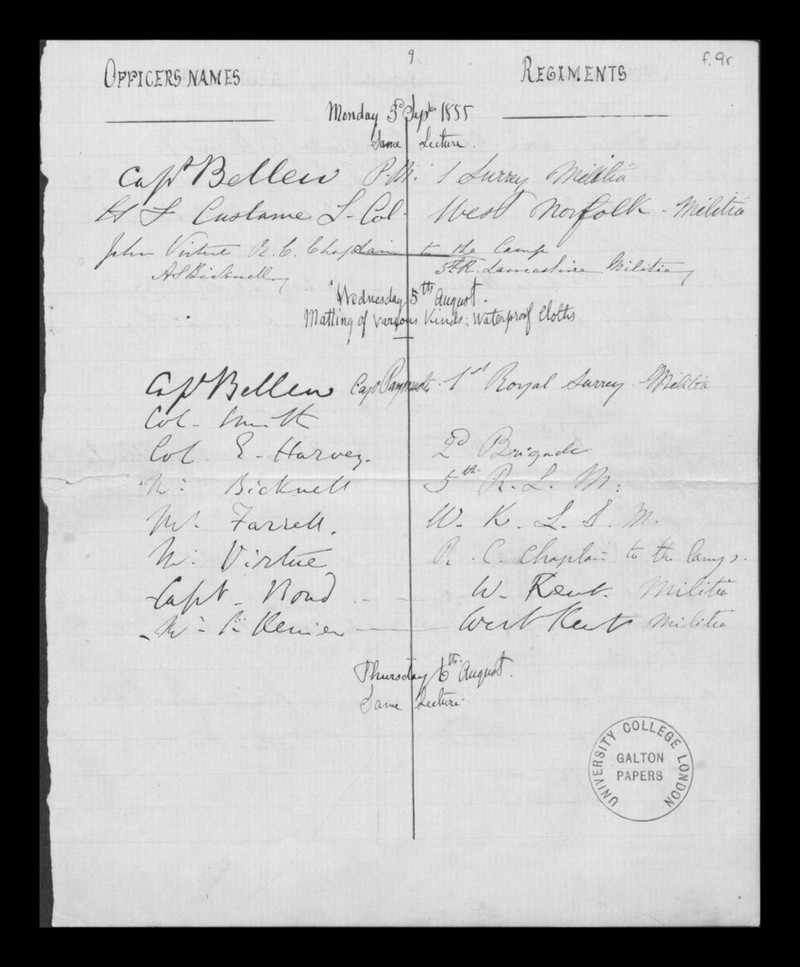 9
f. 9r
OFFICERS NAMES REGIMENTS
Monday 3d Sept 1855
Same Lecture.
Capt Bellew P.M. 1 Surrey Militia
H F Custance L-Col- West Norfolk - Militia
John Virtue R. C. Chaplain to the Camp
A S Bicknell 5th R. Lancashire Militia
Wednesday 5th August.
Matting of various Kinds: Waterproof Cloths
Capt Bellew Capt Paymaster - 1st Royal Surrey - Militia
Col. Smith
Col E. Harvey. 2d Brigade
Mr. Bicknell 5th R. L. M:
Mr. Farrell. W. K. L. I. M.
Mr. Virtue R. C. Chaplain to the Camp.
Capt. Bond -- W- Kent. Militia
Mr. West Kent Militia
Thursday 6th August.
Same Lecture
UNIVERSITY COLLEGE LONDON
GALTON
PAPERS